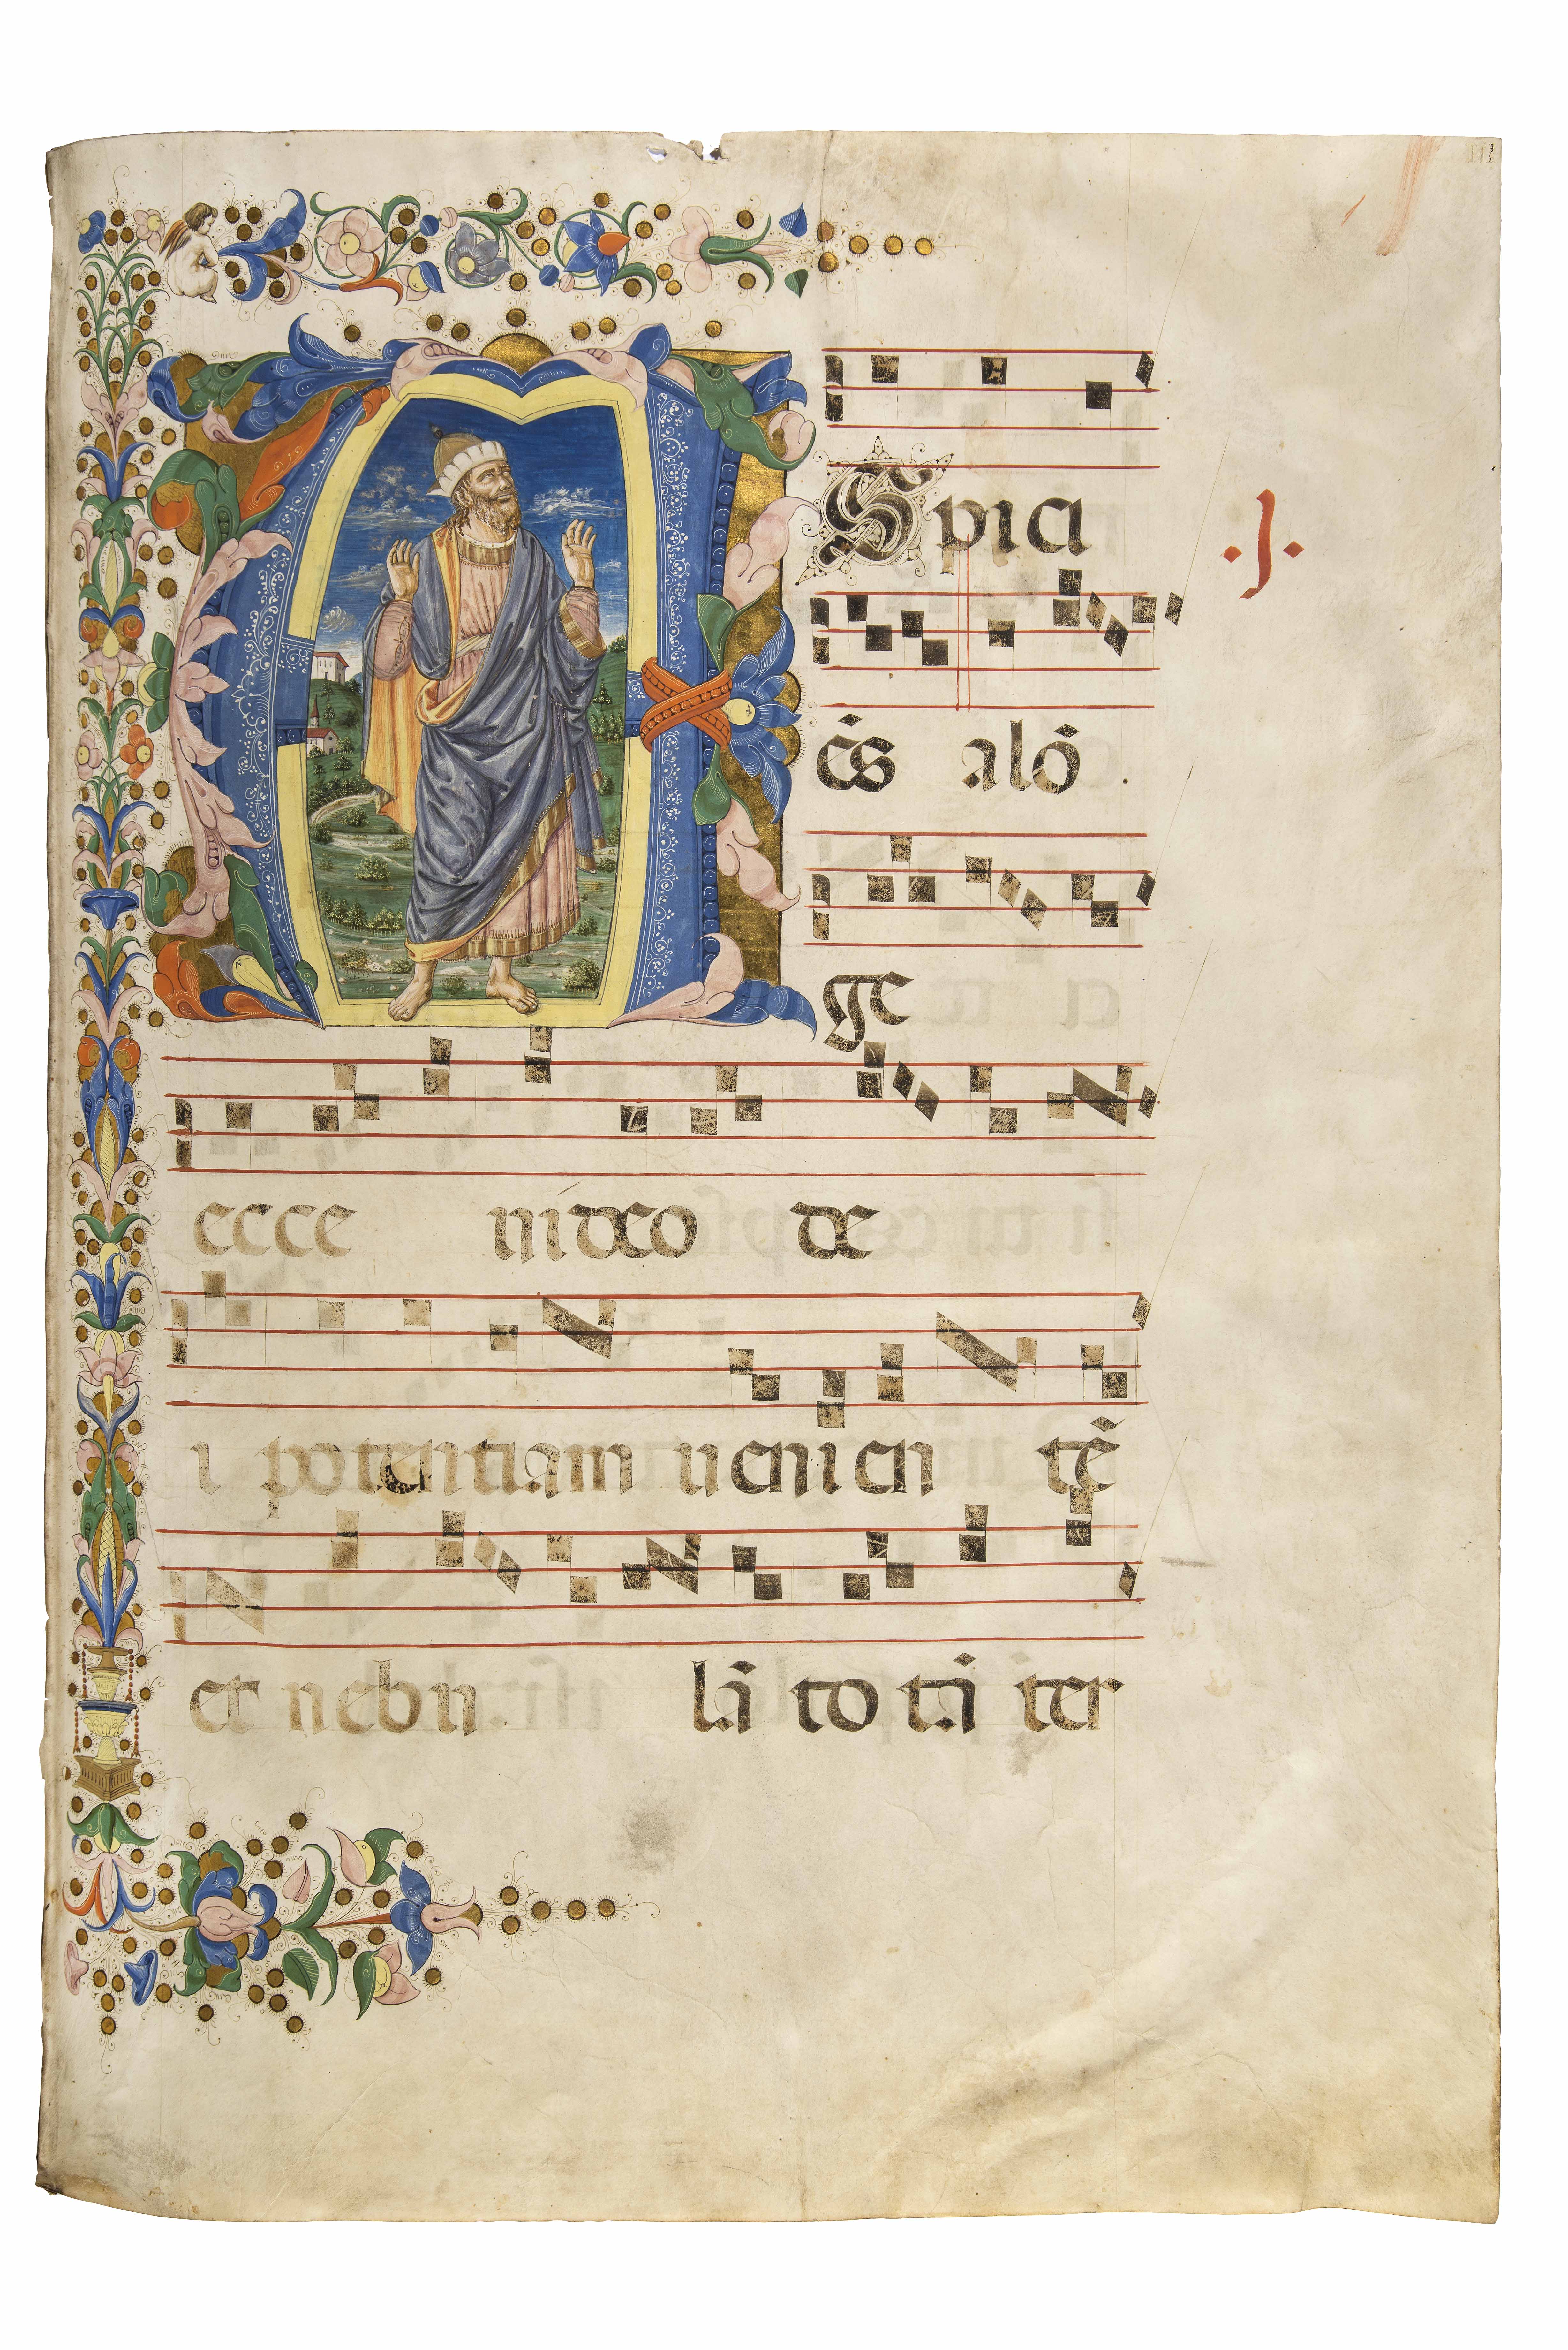 ASpici
ēs alō
ge
ecce uideo de
i potentiam uenien tē
et nebu lā to tā ter